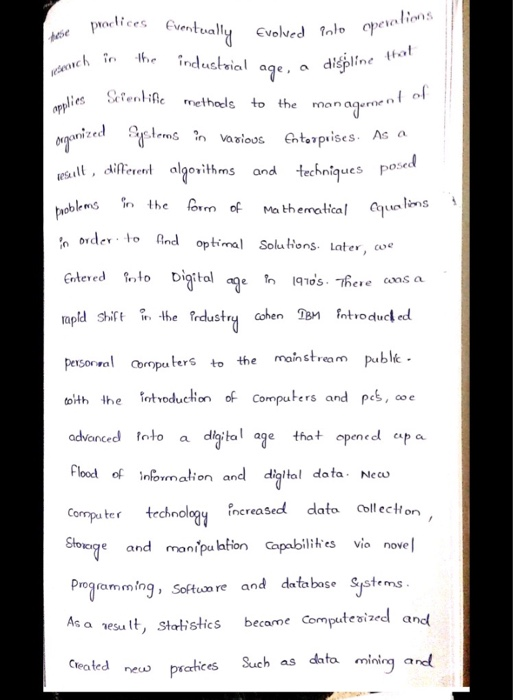 these practices Eventually Evolved into operations
research in the industrial age, a displine that
applies Scientific methods to the management of
organized Systems in various Enterprises. As a
result, different algorithms and techniques posed
problems in the form of Mathematical Equations
in order to find optimal Solutions. Later, we
Entered into Digital age in 1970's. There was a
rapid shift in the industry when IBM introducted
personal computers to the mainstream public.
with the introduction of computers and pcs, we
advanced into a digital age that opened up a
flood of information and digital data. New
Computer technology increased data collection,
Storage and manipulation capabilities via novel
Programming, Software and database Systems.
As a result, Statistics became Computerized and
Created new pratices Such as data mining and